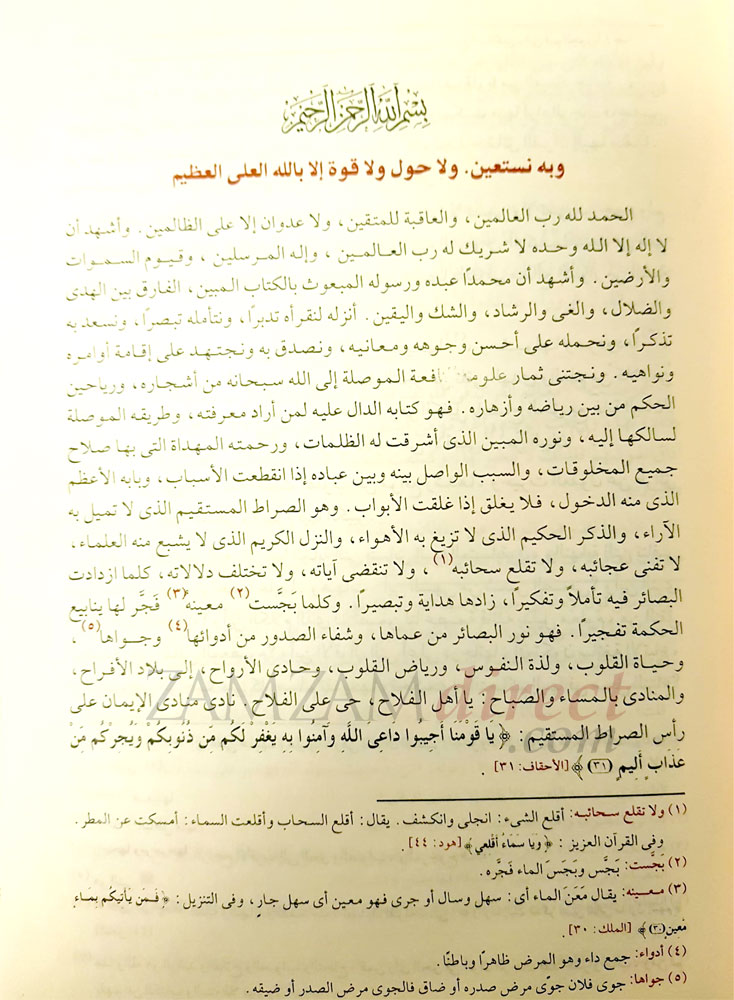 بسم الله الرحمن الرحيم
وبه نستعين. ولا حول ولا قوة إلا بالله العلى العظيم
الحمد لله رب العالمين، والعاقبة للمتقين، ولا عدوان إلا على الظالمين. وأشهد أن
لا إله إلا الله وحده لا شريك له رب العالمين، وإله المرسلين، وقيوم السموات
والأرضين. وأشهد أن محمدًا عبده ورسوله المبعوث بالكتاب المبين، الفارق بين الهدى
والضلال، والغى والرشاد، والشك واليقين. أنزله لنقرأه تدبرًا، ونتأمله تبصرًا، ونسعد به
تذكرًا، ونحمله على أحسن وجوهه ومعانيه، ونصدق به ونجتهد على إقامة أوامره
ونواهيه. ونجتنى ثمار علومه الموصلة إلى الله سبحانه من أشجاره، ورياحين
الحكم من بين رياضه وأزهاره. فهو كتابه الدال عليه لمن أراد معرفته، وطريقه الموصلة
لسالكها إليه، ونوره المبين الذى أشرقت له الظلمات، ورحمته المهداة التى بها صلاح
جميع المخلوقات، والسبب الواصل بينه وبين عباده إذا انقطعت الأسباب، وبابه الأعظم
الذى منه الدخول، فلا يغلق إذا غلقت الأبواب. وهو الصراط المستقيم الذى لا تميل به
الآراء، والذكر الحكيم الذى لا تزيغ به الأهواء، والنزل الكريم الذى لا يشبع منه العلماء،
لا تفنى عجائبه، ولا تقلع سحائبه(١)، ولا تنقضى آياته، ولا تختلف دلالاته، كلما ازدادت
البصائر فيه تأملاً وتفكيرًا، زادها هداية وتبصيرًا. وكلما بَجَّست(٢) معينه(٣) فَجَّر لها ينابيع
الحكمة تفجيرًا. فهو نور البصائر من عماها، وشفاء الصدور من أدوائها(٤) وجواها(٥)،
وحياة القلوب، ولذة النفوس، ورياض القلوب، وحادى الأرواح، إلى بلاد الأفراح،
والمنادى بالمساء والصباح: يا أهل الفلاح، حى على الفلاح. نادى منادى الإيمان على
رأس الصراط المستقيم: ﴿يا قَوْمَنَا أَجِيبوا داعِى اللَّهِ وَآمِنُوا بِهِ يَغْفِرْ لَكُم مِّن ذُنُوبِكُمْ وَيُجِرْكُم مِّنْ
عَذابٍ أَلِيمٍ (٣١)﴾ [الأحقاف: ٣١].
(١) ولا تقلع سحائبه: أقلع الشىء: انجلى وانكشف. يقال: أقلع السحاب وأقلعت السماء: أمسكت عن المطر.
وفى القرآن العزيز: ﴿وَيا سَمَاءُ أَقْلِعِي﴾ [هود: ٤٤].
(٢) بَجَّست: بَجَّس وبَجَسَ الماء فَجَّره.
(٣) معينه: يقال مَعَنَ الماء أى: سهل وسال أو جرى فهو معين أى سهل جارٍ، وفى التنزيل: ﴿فَمَن يَأْتِيكُم بِمَاءٍ
مَّعِينٍ (٣٠)﴾ [الملك: ٣٠].
(٤) أدواء: جمع داء وهو المرض ظاهرًا وباطنًا.
(٥) جواها: جوى فلان جوًى مرض صدره أو ضاق فالجوى مرض الصدر أو ضيقه.
ZAMZAMdirect
.com